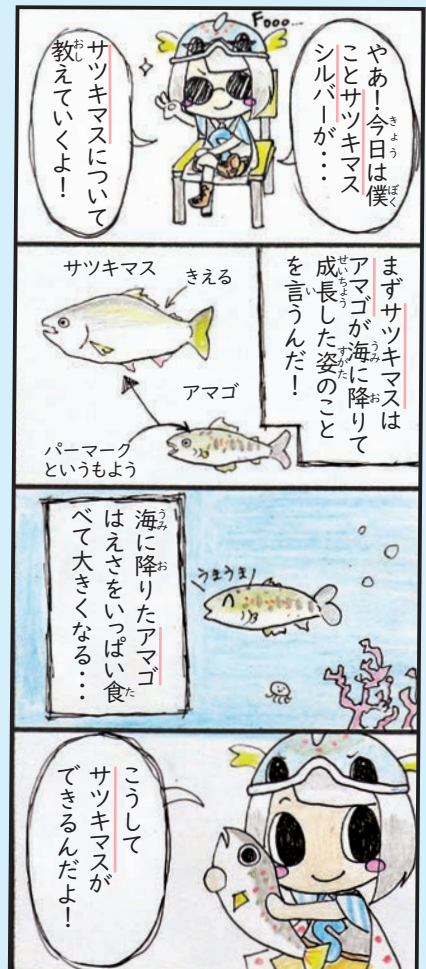 Fooo...
やあ！今日は僕
ことサツキマス
シルバーが・・・
サツキマスについて
教えていくよ！
まずサツキマスは
アマゴが海に降りて
成長した姿のこと
を言うんだ！
サツキマス
きえる
アマゴ
パーマーク
というもよう
海に降りたアマゴ
はえさをいっぱい食
べて大きくなる・・・
うまうま
こうして
サツキマスが
できるんだよ！